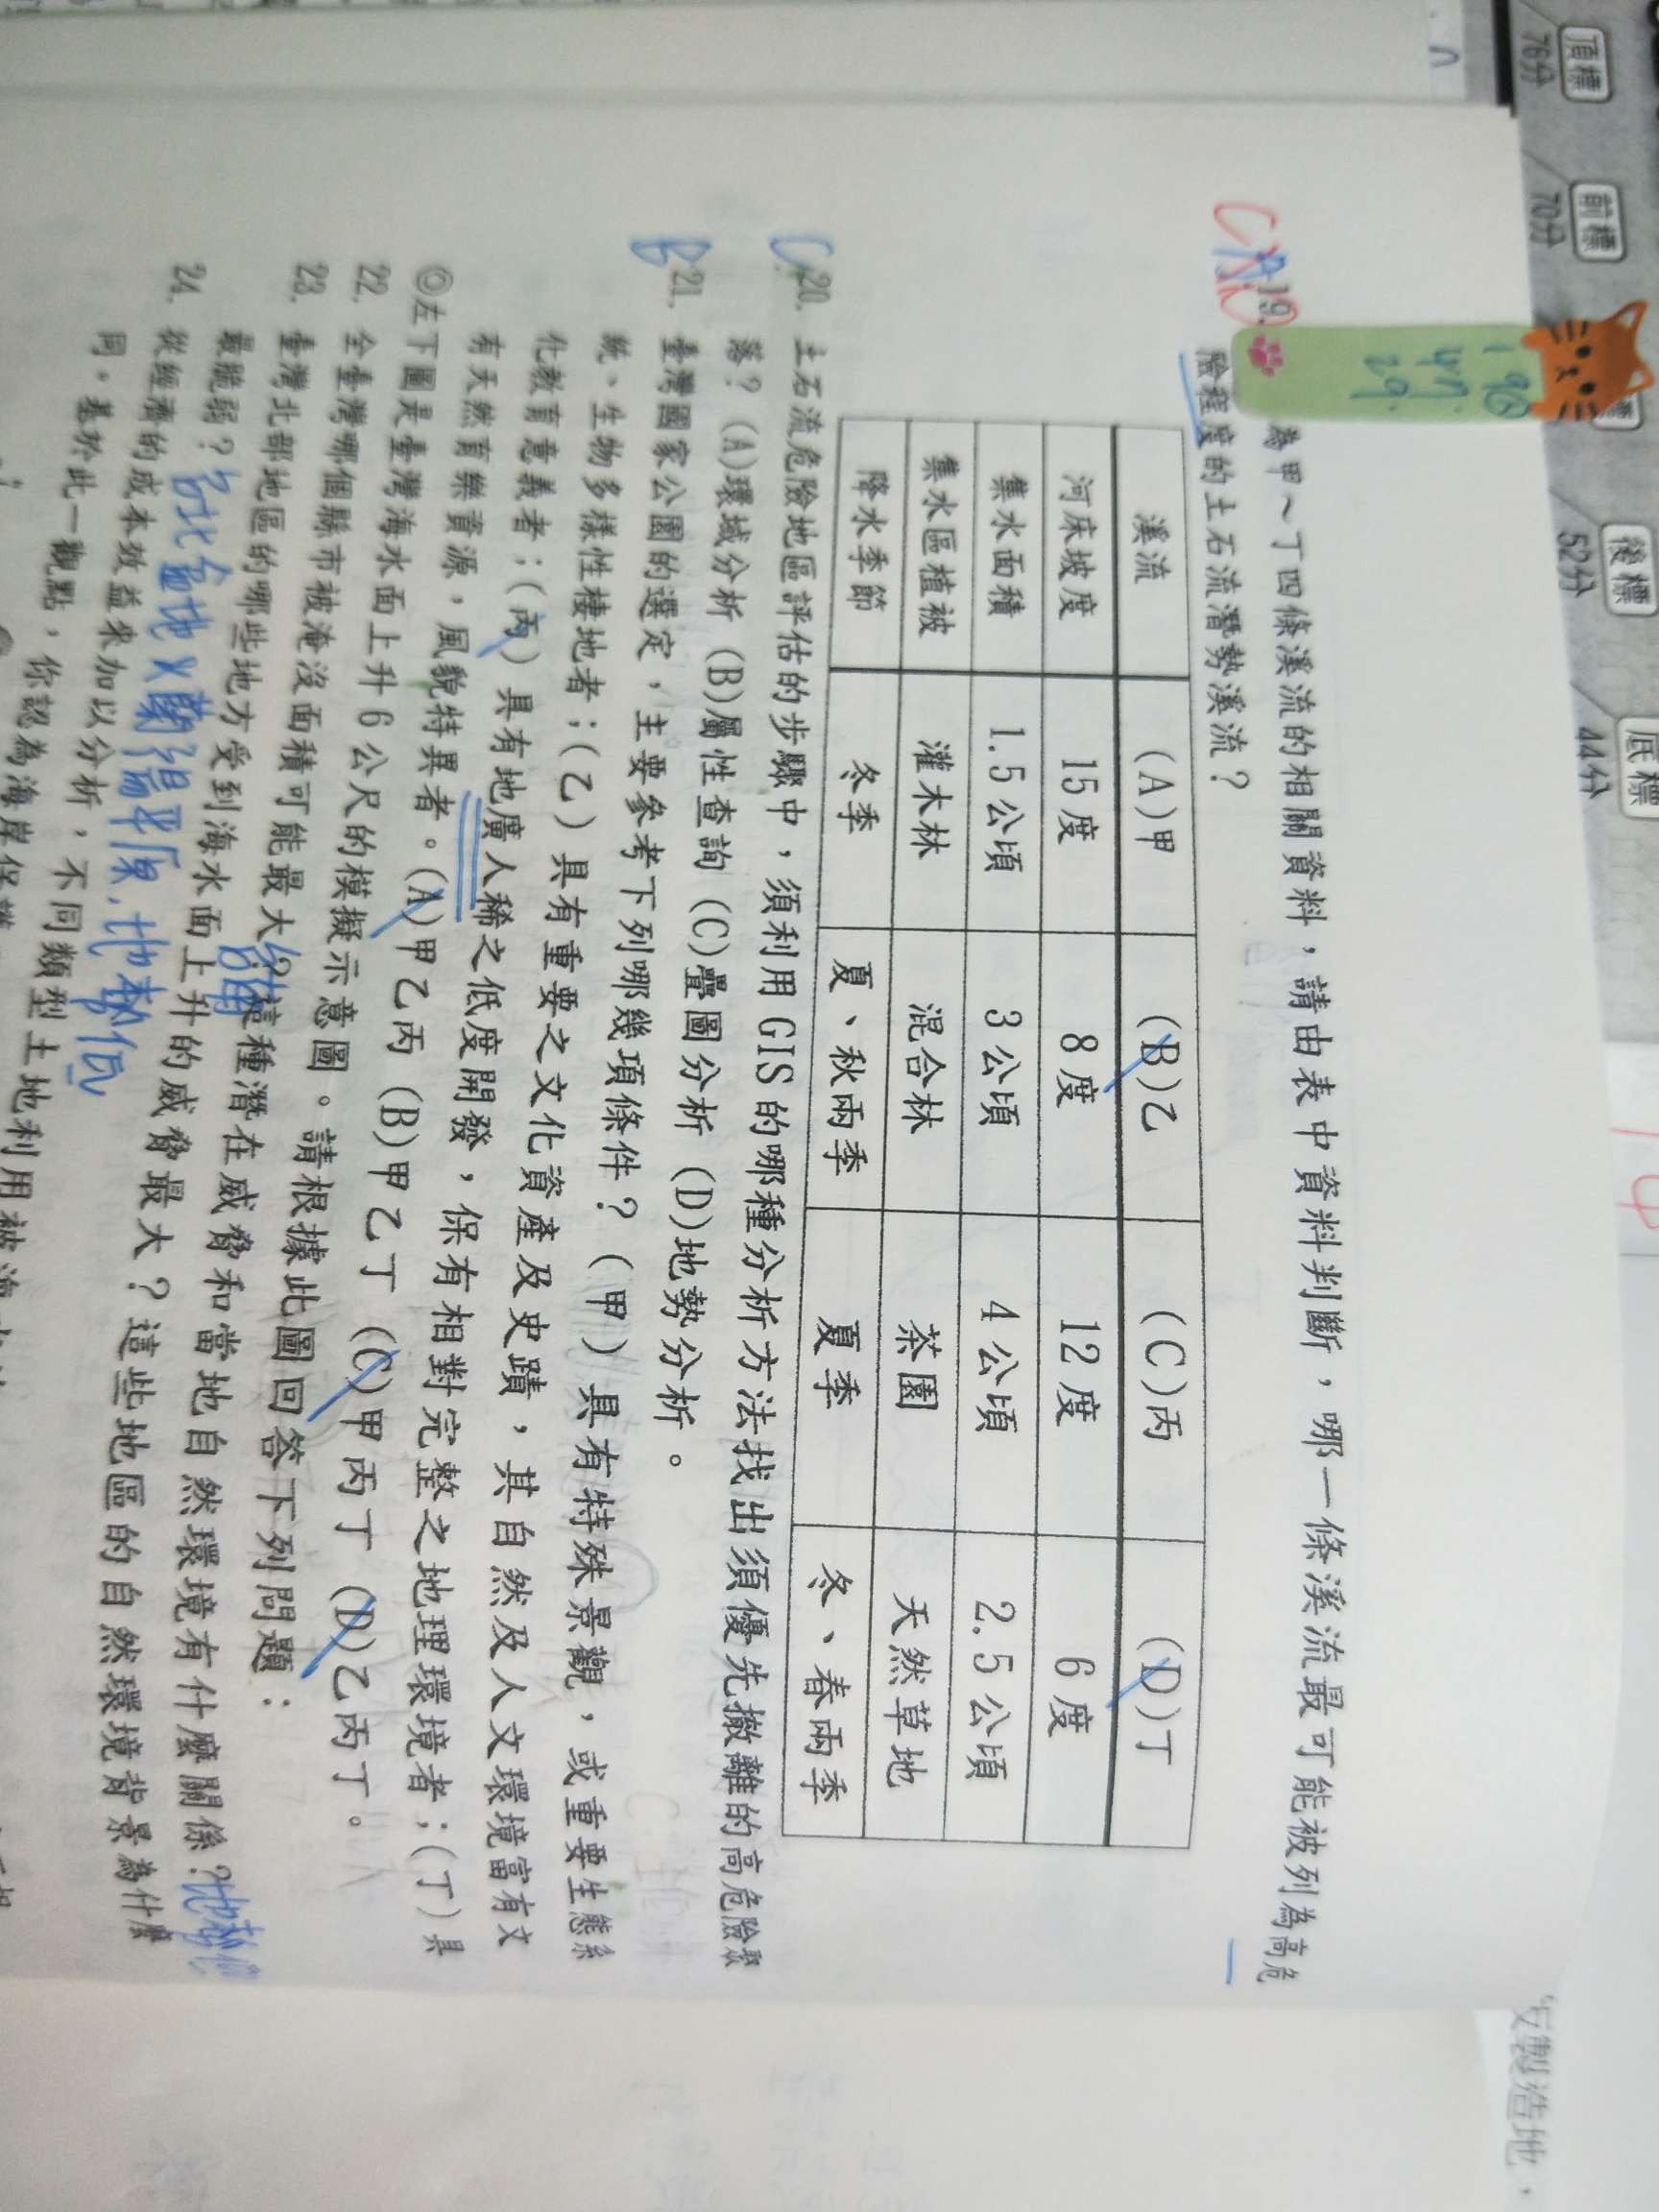 頂標
76分
前標
70分
後標
52分
底標
44分
19.
為甲～丁四條溪流的相關資料，請由表中資料判斷，哪一條溪流最可能被列為高危
險程度的土石流潛勢溪流？
溪流 (A)甲 (B)乙 (C)丙 (D)丁
河床坡度 15度 8度 12度 6度
集水面積 1.5公頃 3公頃 4公頃 2.5公頃
集水區植被 灌木林 混合林 茶園 天然草地
降水季節 冬季 夏、秋兩季 夏季 冬、春兩季
C 20. 土石流危險地區評估的步驟中，須利用GIS的哪種分析方法找出須優先撤離的高危險聚
落？(A)環域分析 (B)屬性查詢 (C)疊圖分析 (D)地勢分析。
B 21. 臺灣國家公園的選定，主要參考下列哪幾項條件？（甲）具有特殊景觀，或重要生態系
統、生物多樣性棲地者；（乙）具有重要之文化資產及史蹟，其自然及人文環境富有文
化教育意義者；（丙）具有地廣人稀之低度開發，保有相對完整之地理環境者；（丁）具
有天然育樂資源，風貌特異者。(A)甲乙丙 (B)甲乙丁 (C)甲丙丁 (D)乙丙丁。
◎左下圖是臺灣海水面上升6公尺的模擬示意圖。請根據此圖回答下列問題：
22. 全臺灣哪個縣市被淹沒面積可能最大？這種潛在威脅和當地自然環境有什麼關係？
23. 臺灣北部地區的哪些地方受到海水面上升的威脅最大？這些地區的自然環境背景為什麼
最脆弱？台北盆地 蘭陽平原，地勢低
24. 從經濟的成本效益來加以分析，不同類型土地利用被
同。基於此一觀點，你認為海岸保護
反製造地，